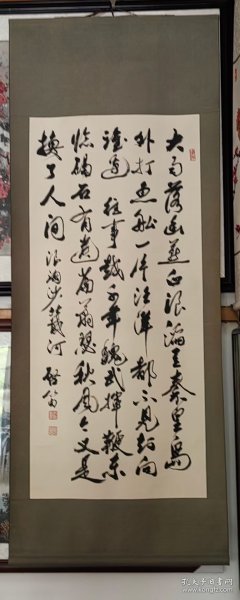 大雨落幽燕白浪滔天秦皇島
外打魚船一片汪洋都不見知向
誰邊往事越千年魏武揮鞭東
臨碣石有遺篇蕭瑟秋風今又是
換了人間 浪淘沙北戴河
孔夫子旧书网